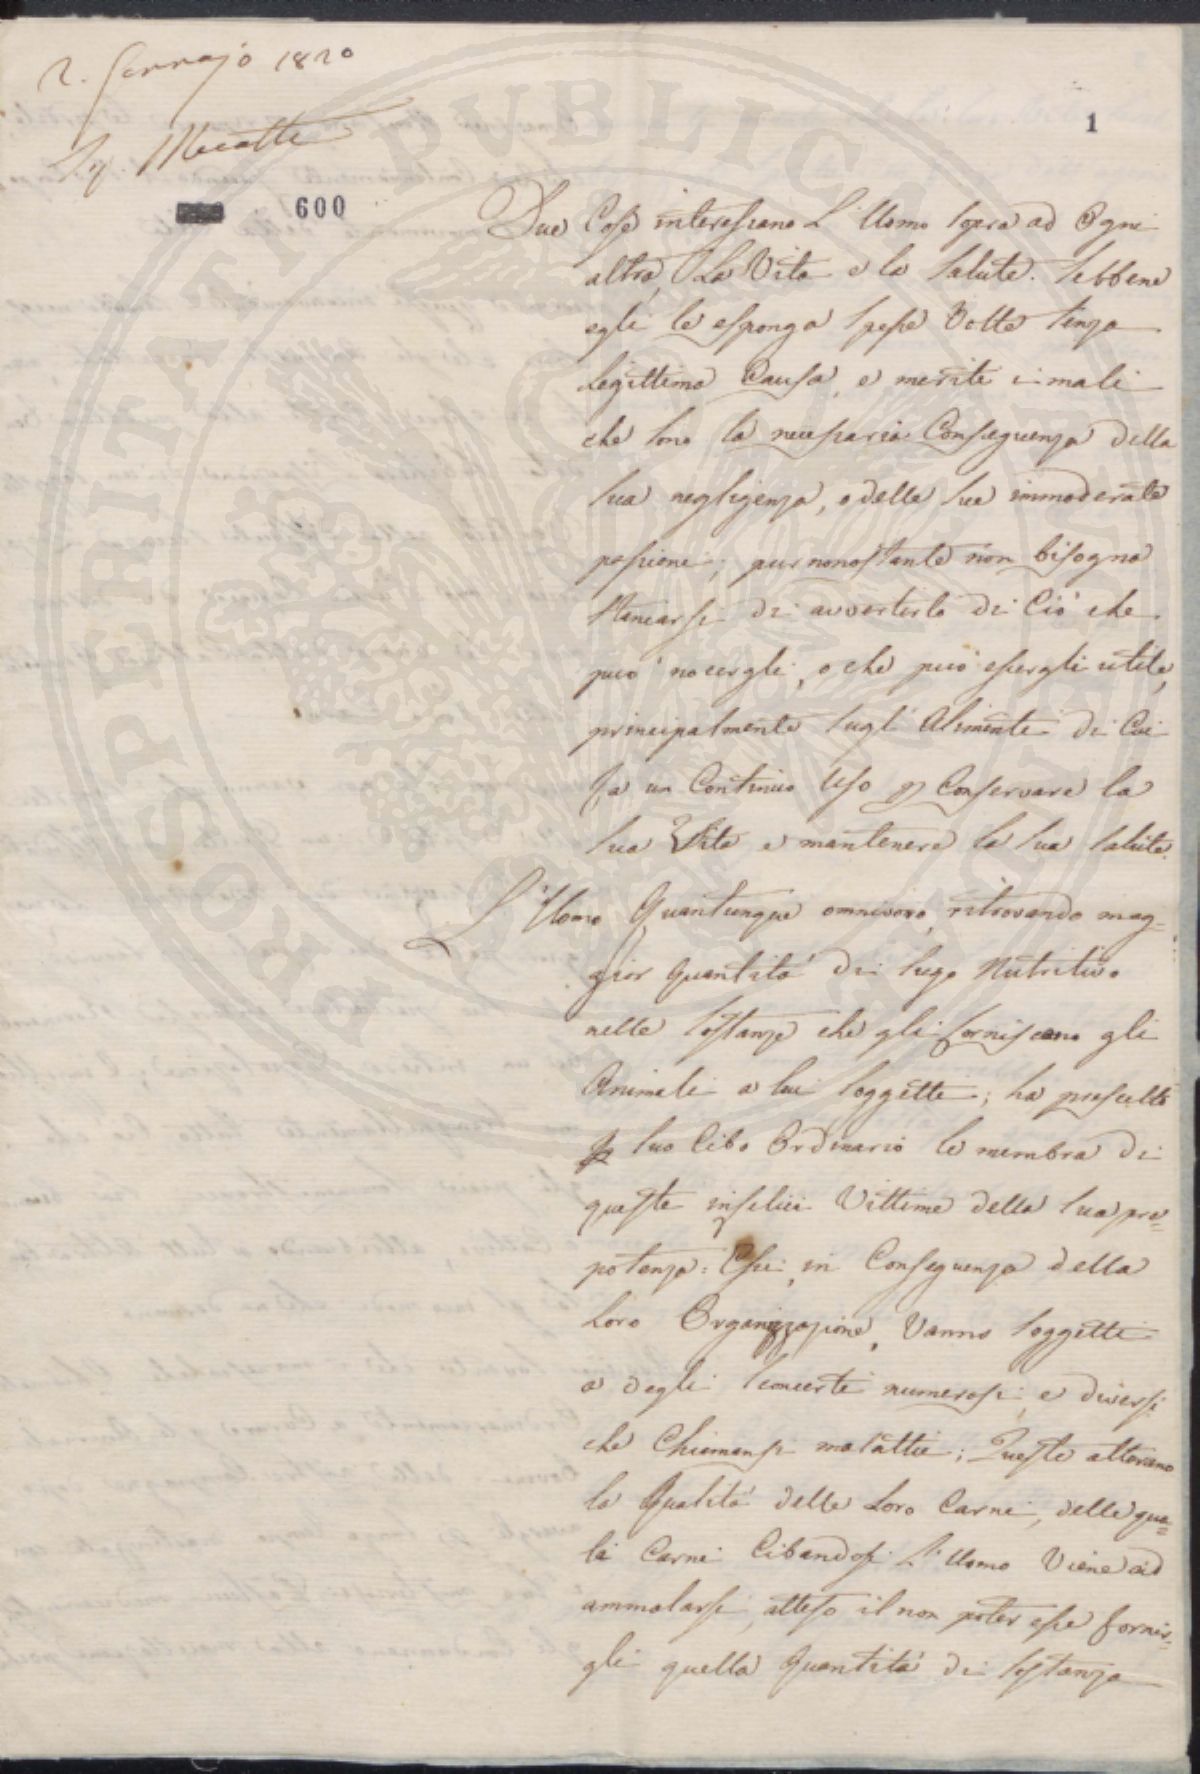 2. Gennajo 1820
Sig. Mecatti
1
600
Due Cose interessano L'Uomo sopra ad Ogni
altra, La Vita e la Salute. Sebbene
egli le esponga spesse Volte senza
Legittima Causa, e meriti i mali
che sono la necessaria Conseguenza della
sua negligenza, o delle sue immoderate
passioni; pur nonostante non bisogna
stancarsi di avvertirlo di Ciò che
può nocergli, o che può essergli utile,
principalmente sugl'Alimenti di Cui
fa un Continuo Uso p Conservare la
sua Vita e mantenere la sua Salute.
L'Uomo Quantunque omnivoro, ritrovando mag=
gior Quantità di sugo Nutritivo
nelle sostanze che gli forniscano gli
Animali a lui soggetti; ha prescelto
p suo Cibo Ordinario le membra di
queste infelici Vittime della sua pre=
potenza: Essi, in Conseguenza della
Loro Organizzazione, Vanno soggetti
a degli sconcerti numerosi, e diversi
che Chiamansi malattie; Queste alterano
la Qualità delle Loro Carni, delle qua=
li Carni Cibandosi L'Uomo Viene ad
ammalarsi, atteso il non poter esse fornir=
gli quella Quantità di sostanza
PROSPERITATI PUBLICAE AUGENDAE